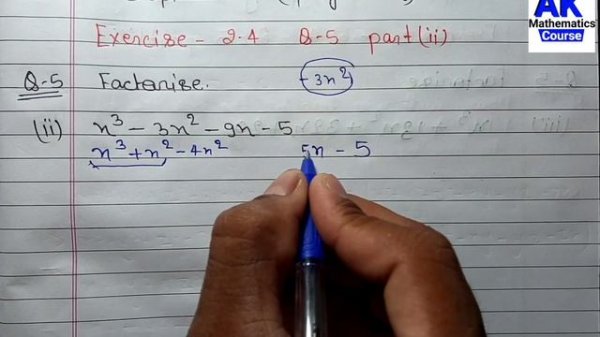 Exercise - 2.4 Q-5 part (ii)
AK
Mathematics
Course
Q-5 Factorise.
-3x²
(ii) x³ - 3x² - 9x - 5
x³ + x² - 4x² 5x - 5